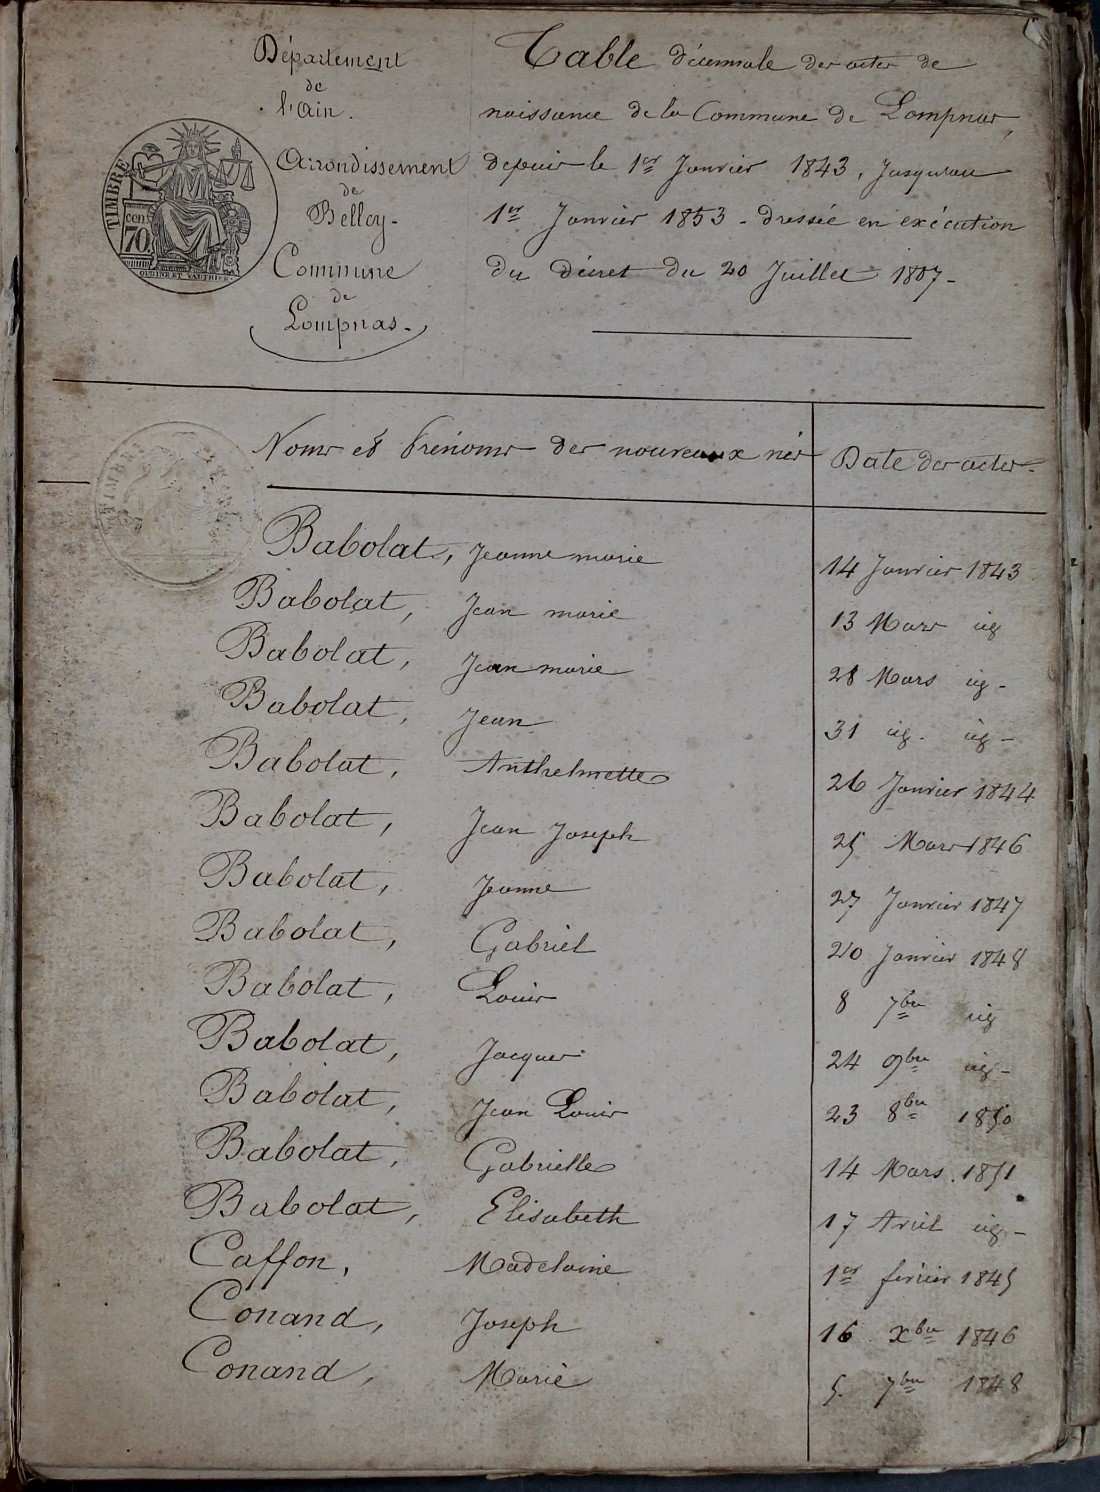 Département
de
l'Ain.
Arrondissement
de
Belley-
Commune
de
Lompnas.
TIMBRE
cen
70
OUDINE ET VAUTHIER
Table décennale des actes de
naissance de la Commune de Lompnas,
depuis le 1er Janvier 1843, Jusqu'au
1er Janvier 1853 - dressée en exécution
du décret du 20 Juillet 1807-
Noms et Prénoms des nouveaux nés Date des actes.
TIMBRE
Babolat, Jeanne marie 14 Janvier 1843
Babolat, Jean marie 13 Mars id
Babolat, Jean marie 28 Mars id-
Babolat, Jean 31 id. id-
Babolat, Anthelmette 26 Janvier 1844
Babolat, Jean Joseph 25 Mars 1846
Babolat, Jeanne 27 Janvier 1847
Babolat, Gabriel 20 Janvier 1848
Babolat, Louis 8 7bre id
Babolat, Jacques 24 9bre id-
Babolat, Jean Louis 23 8bre 1850
Babolat, Gabrielle 14 Mars. 1851
Babolat, Elisabeth 17 Avril id-
Caffon, Madelaine 1er février 1845
Conand, Joseph 16 xbre 1846
Conand, Marie 5. 7bre 1848